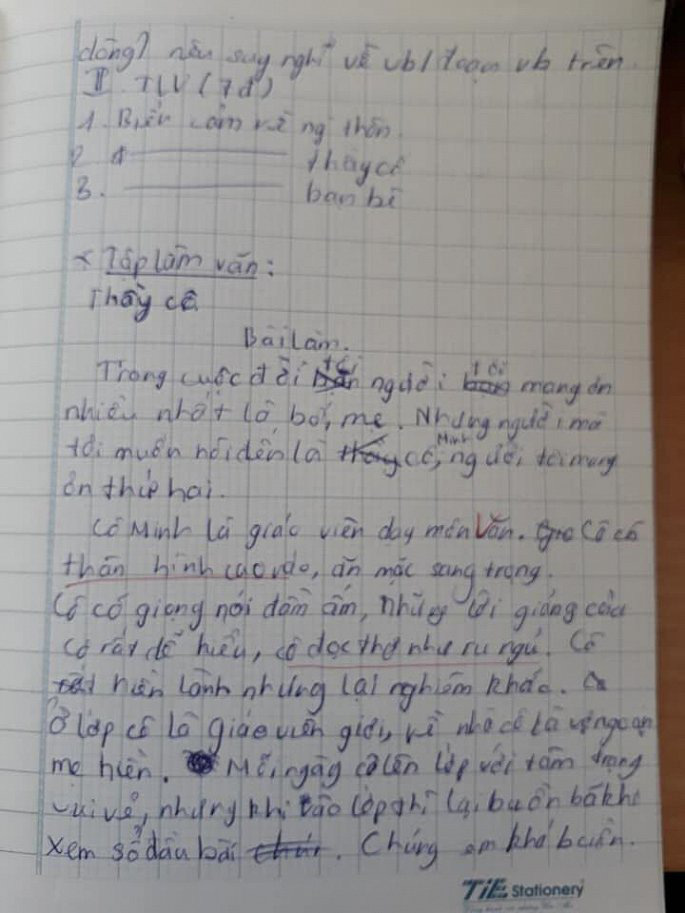 dòng) nêu suy nghĩ về vb/đoạn vb trên.
II. TLV (7đ)
1. Biểu cảm về ng thân.
2. thầy cô
3. bạn bè
* Tập làm văn:
Thầy cô
Bài làm.
Trong cuộc đời tôi người tôi mang ơn
nhiều nhất là bố, mẹ. Nhưng người mà
tôi muốn nói đến là cô Minh, người tôi mang
ơn thứ hai.
Cô Minh là giáo viên dạy môn Văn. Cô có
thân hình cao ráo, ăn mặc sang trọng.
Cô có giọng nói đầm ấm, những lời giảng của
cô rất dễ hiểu, cô đọc thơ như ru ngủ. Cô
hiền lành nhưng lại nghiêm khắc.
Ở lớp cô là giáo viên giỏi, về nhà cô là vợ ngoan
mẹ hiền. Mỗi ngày cô lên lớp với tâm trạng
vui vẻ, nhưng khi vào lớp thì lại buồn bã khi
xem sổ đầu bài. Chúng em khá buồn.
TiE Stationery